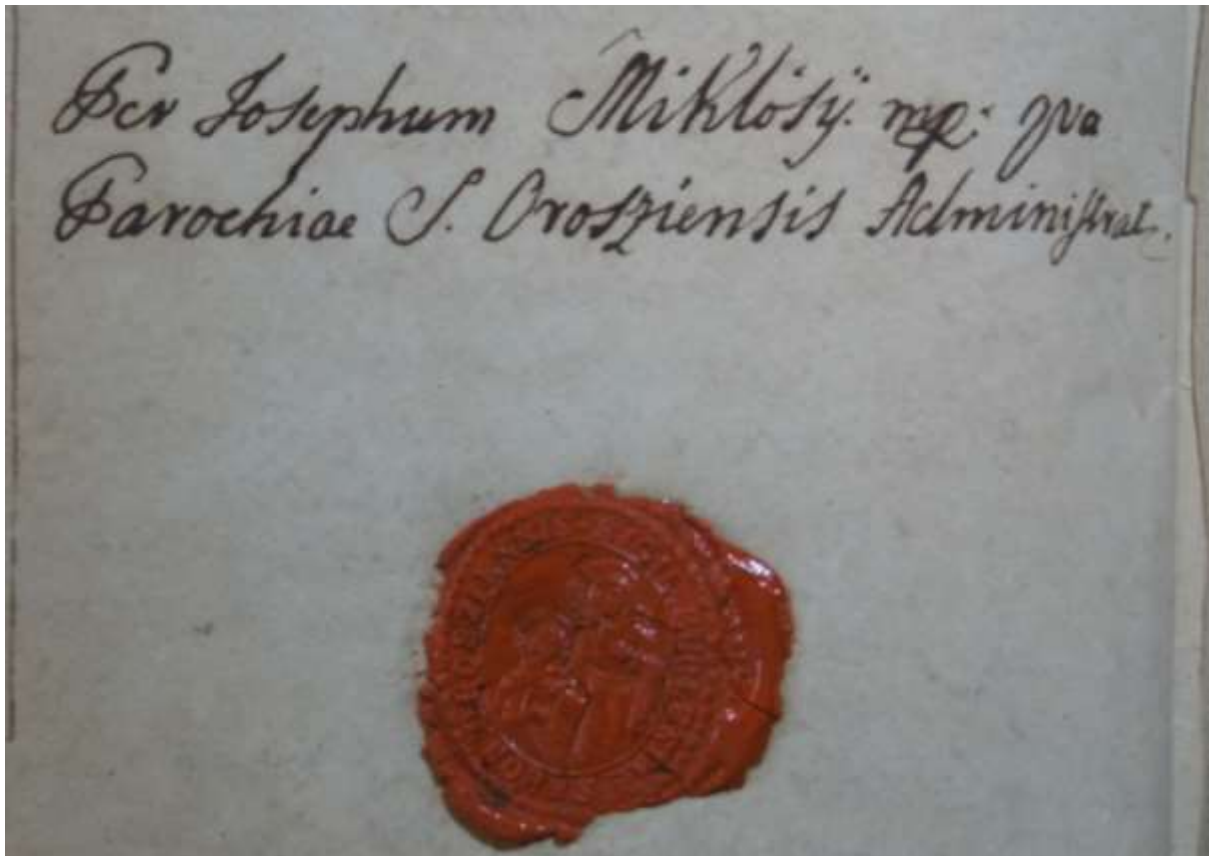 Per Josephum Miklósÿ. mp: qua
Parochiae S. Orosziensis Administrat.